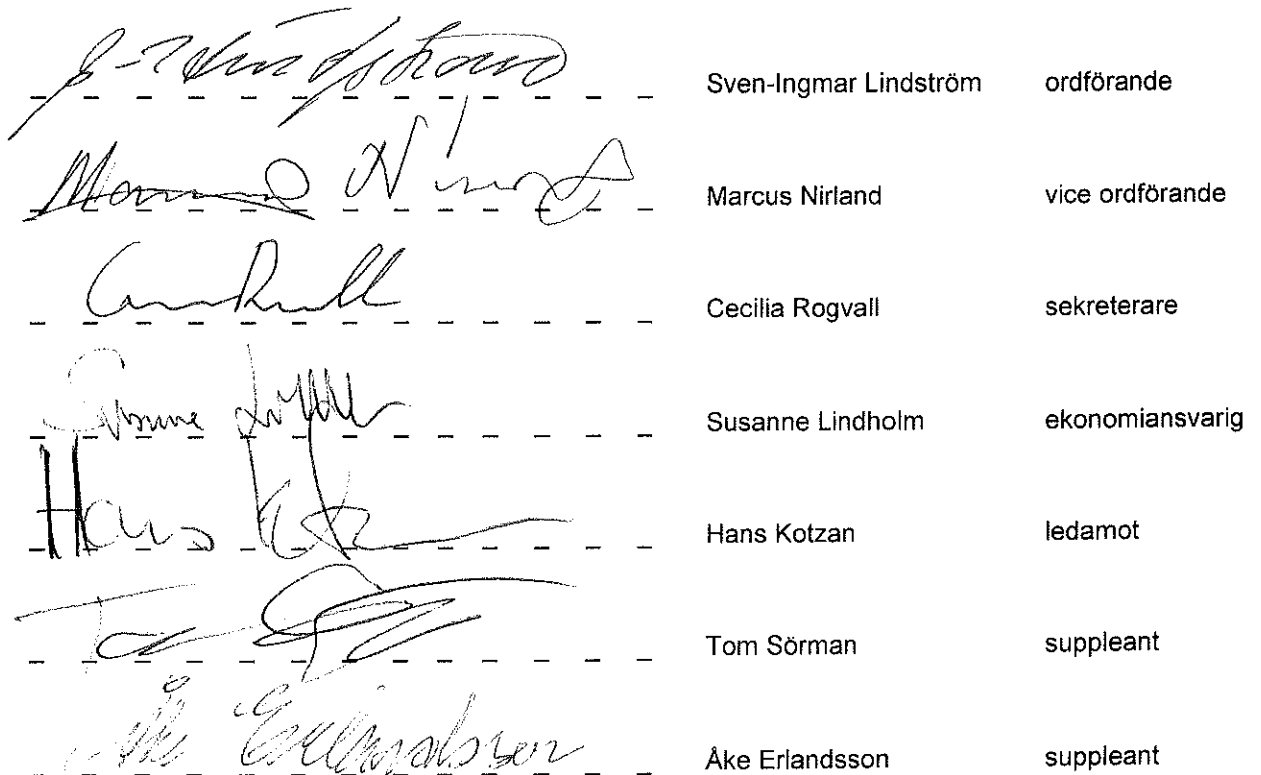 Sven-Ingmar Lindström ordförande
Marcus Nirland vice ordförande
Cecilia Rogvall sekreterare
Susanne Lindholm ekonomiansvarig
Hans Hans Kotzan ledamot
Tom Tom Sörman suppleant
Åke Erlandsson Åke Erlandsson suppleant